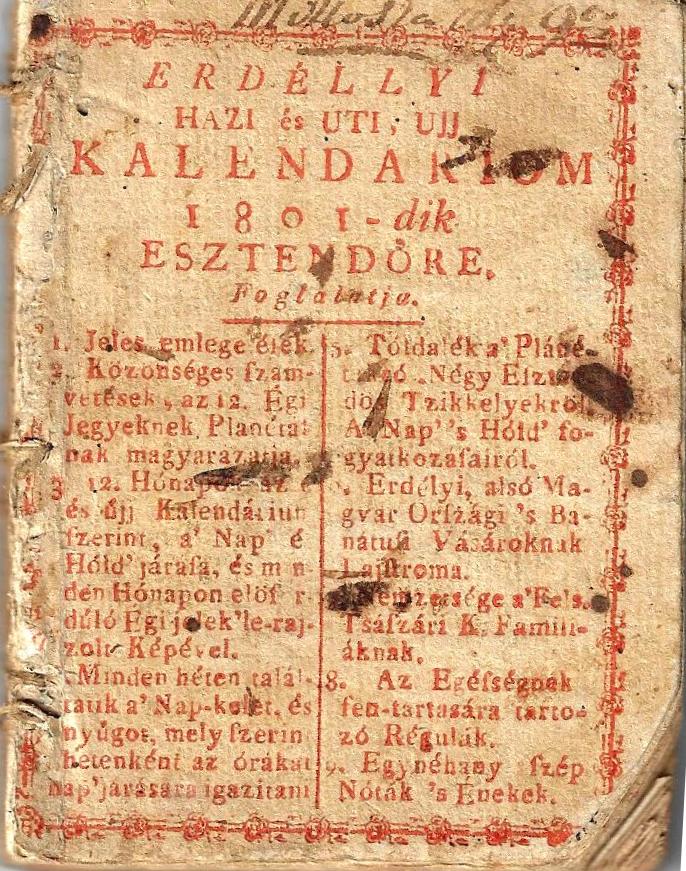 ERDÉLLYI
HAZI és UTI, UJJ
KALENDARIOM
1801-dik
ESZTENDŐRE.
Foglalatja.
1. Jeles emlege
2. Közönséges ſzám-
vetések, az 12. Égi
Jegyeknek, Planétái
nak magyarazatja.
3 12. Hónapok az
és újj Kalendáriun
ſzerint, a' Nap é
Hóld' járaſa, és m n
den Hónapon előf r
dúló Egi jelek' le-raj-
zolt Képével.
Minden héten talál-
tauk a' Nap-kelet, és
nyúgot, mely ſzerin
hetenként az órákat
nap' járására igazitani
5. Tóldalék a' Pláné-
Négy Eſzte
dő Tzikkelyekről.
A' Nap' 's Hóld' fo-
gyatkozáſairól.
Erdélyi, alsó Ma-
gyar Orſzági 's Ba-
nátuſi Vásároknak
Lajſtroma.
Nemzetsége a' Fels.
Tsáſzári K. Famili-
áknak.
8. Az Egéſségnek
fen-tartasára tarto-
zó Régulák.
9. Egynéhany ſzép
Nóták 's Énekek.